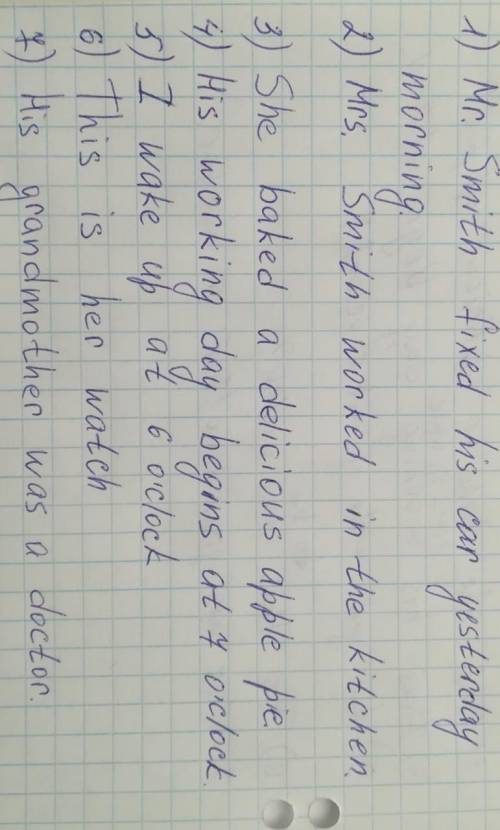 1) Mr. Smith fixed his car yesterday
morning.
2) Mrs. Smith worked in the kitchen.
3) She baked a delicious apple pie.
4) His working day begins at 7 o'clock.
5) I wake up at 6 o'clock
6) This is her watch
7) His grandmother was a doctor.